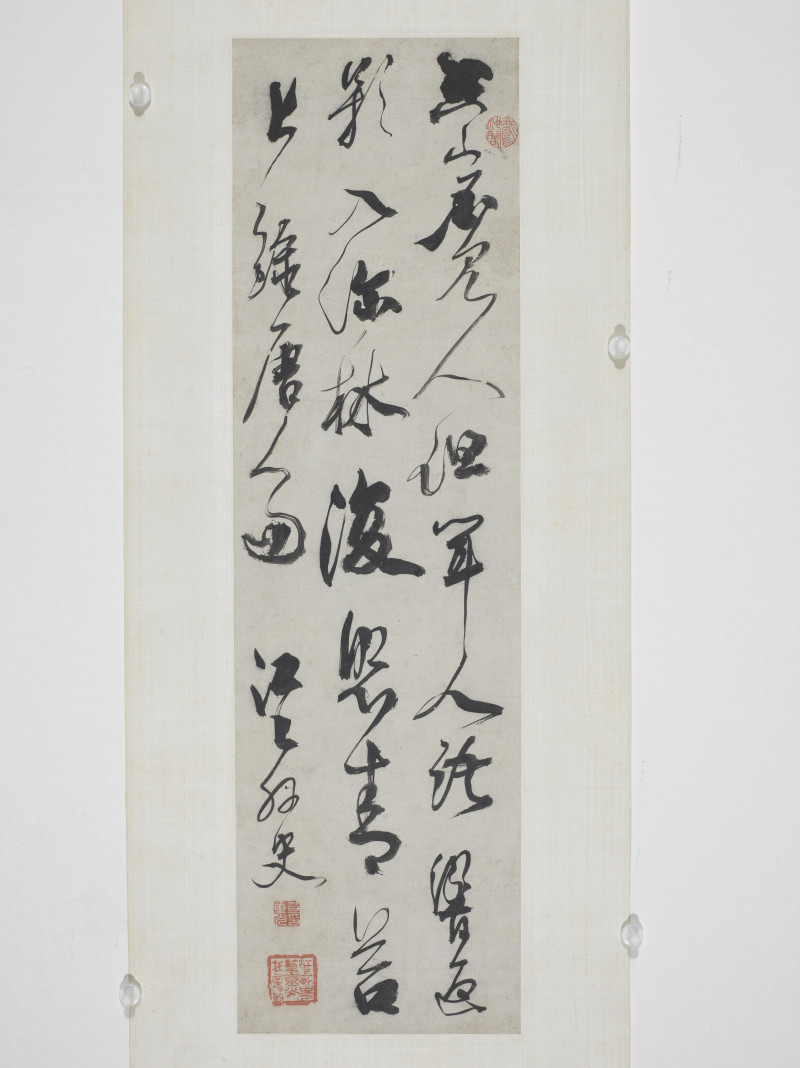 空山不見人但聞人語響返
影入深林復照青苔
上 錄唐人 江上外史